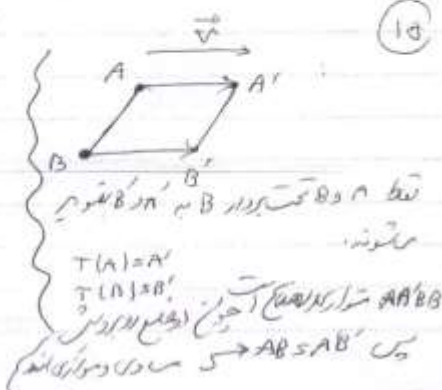 18
V
A
A'
B
B'
نقاط A و B تحت بردار B به A' و B' تصویر
می‌شوند.
T(A)=A'
T(B)=B'
AA'BB' متوازی‌الاضلاع است چون دو ضلع روبروش
پس AB=AB' مساوی و موازی‌اند